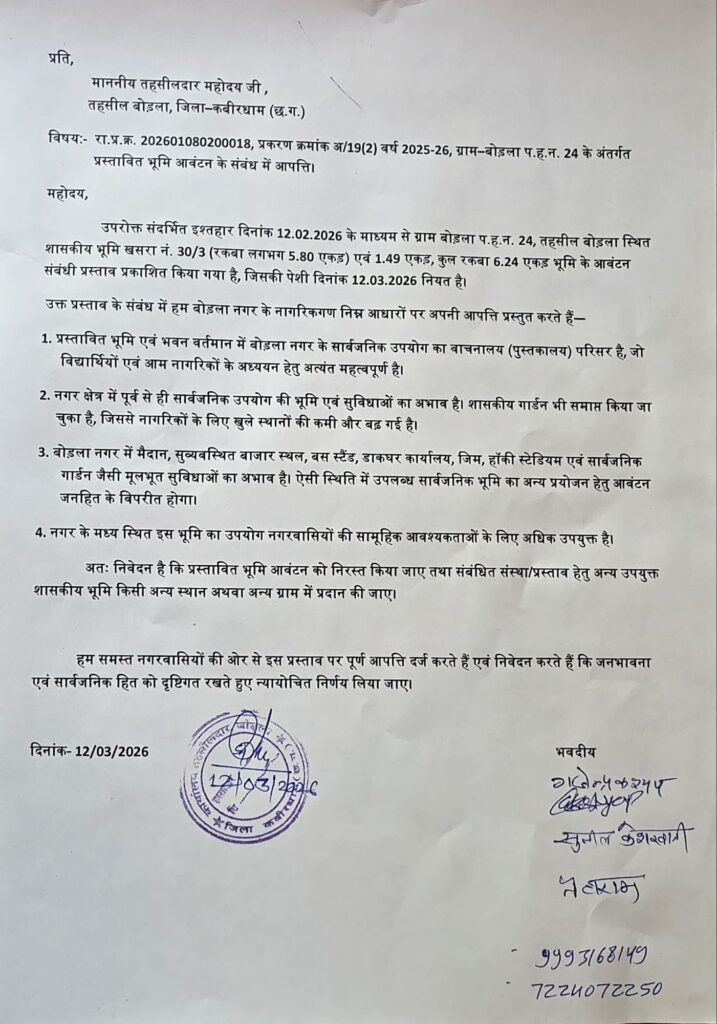 प्रति,
माननीय तहसीलदार महोदय जी ,
तहसील बोड़ला, जिला–कबीरधाम (छ.ग.)
विषयः- रा.प्र.क्र. 202601080200018, प्रकरण क्रमांक अ/19(2) वर्ष 2025-26, ग्राम–बोड़ला प.ह.न. 24 के अंतर्गत
प्रस्तावित भूमि आवंटन के संबंध में आपत्ति।
महोदय,
उपरोक्त संदर्भित इश्तहार दिनांक 12.02.2026 के माध्यम से ग्राम बोड़ला प.ह.न. 24, तहसील बोड़ला स्थित
शासकीय भूमि खसरा नं. 30/3 (रकबा लगभग 5.80 एकड़) एवं 1.49 एकड़, कुल रकबा 6.24 एकड़ भूमि के आवंटन
संबंधी प्रस्ताव प्रकाशित किया गया है, जिसकी पेशी दिनांक 12.03.2026 नियत है।
उक्त प्रस्ताव के संबंध में हम बोड़ला नगर के नागरिकगण निम्न आधारों पर अपनी आपत्ति प्रस्तुत करते हैं—
1. प्रस्तावित भूमि एवं भवन वर्तमान में बोड़ला नगर के सार्वजनिक उपयोग का वाचनालय (पुस्तकालय) परिसर है, जो
विद्यार्थियों एवं आम नागरिकों के अध्ययन हेतु अत्यंत महत्वपूर्ण है।
2. नगर क्षेत्र में पूर्व से ही सार्वजनिक उपयोग की भूमि एवं सुविधाओं का अभाव है। शासकीय गार्डन भी समाप्त किया जा
चुका है, जिससे नागरिकों के लिए खुले स्थानों की कमी और बढ़ गई है।
3. बोड़ला नगर में मैदान, सुव्यवस्थित बाजार स्थल, बस स्टैंड, डाकघर कार्यालय, जिम, हॉकी स्टेडियम एवं सार्वजनिक
गार्डन जैसी मूलभूत सुविधाओं का अभाव है। ऐसी स्थिति में उपलब्ध सार्वजनिक भूमि का अन्य प्रयोजन हेतु आवंटन
जनहित के विपरीत होगा।
4. नगर के मध्य स्थित इस भूमि का उपयोग नगरवासियों की सामूहिक आवश्यकताओं के लिए अधिक उपयुक्त है।
अतः निवेदन है कि प्रस्तावित भूमि आवंटन को निरस्त किया जाए तथा संबंधित संस्था/प्रस्ताव हेतु अन्य उपयुक्त
शासकीय भूमि किसी अन्य स्थान अथवा अन्य ग्राम में प्रदान की जाए।
हम समस्त नगरवासियों की ओर से इस प्रस्ताव पर पूर्ण आपत्ति दर्ज करते हैं एवं निवेदन करते हैं कि जनभावना
एवं सार्वजनिक हित को दृष्टिगत रखते हुए न्यायोचित निर्णय लिया जाए।
दिनांक- 12/03/2026
कार्यालय तहसीलदार बोड़ला
12/03/2026
जिला कबीरधाम
भवदीय
गजेन्द्र कश्यप
सुनील केशरवानी
9993168149
7224072250